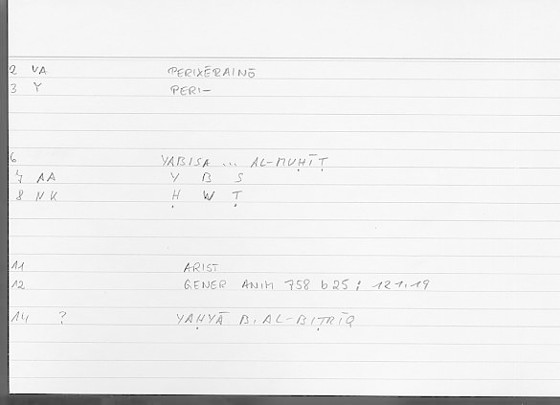 2 VA PERIXĒRAINŌ
3 Y PERI-
6 YABISA ... AL-MUḤĪṬ
7 AA Y B S
8 NK Ḥ W Ṭ
11 ARIST
12 GENER ANIM 758 b25 ; 121,19
14 ? YAḤYĀ B. AL-BIṬRĪQ